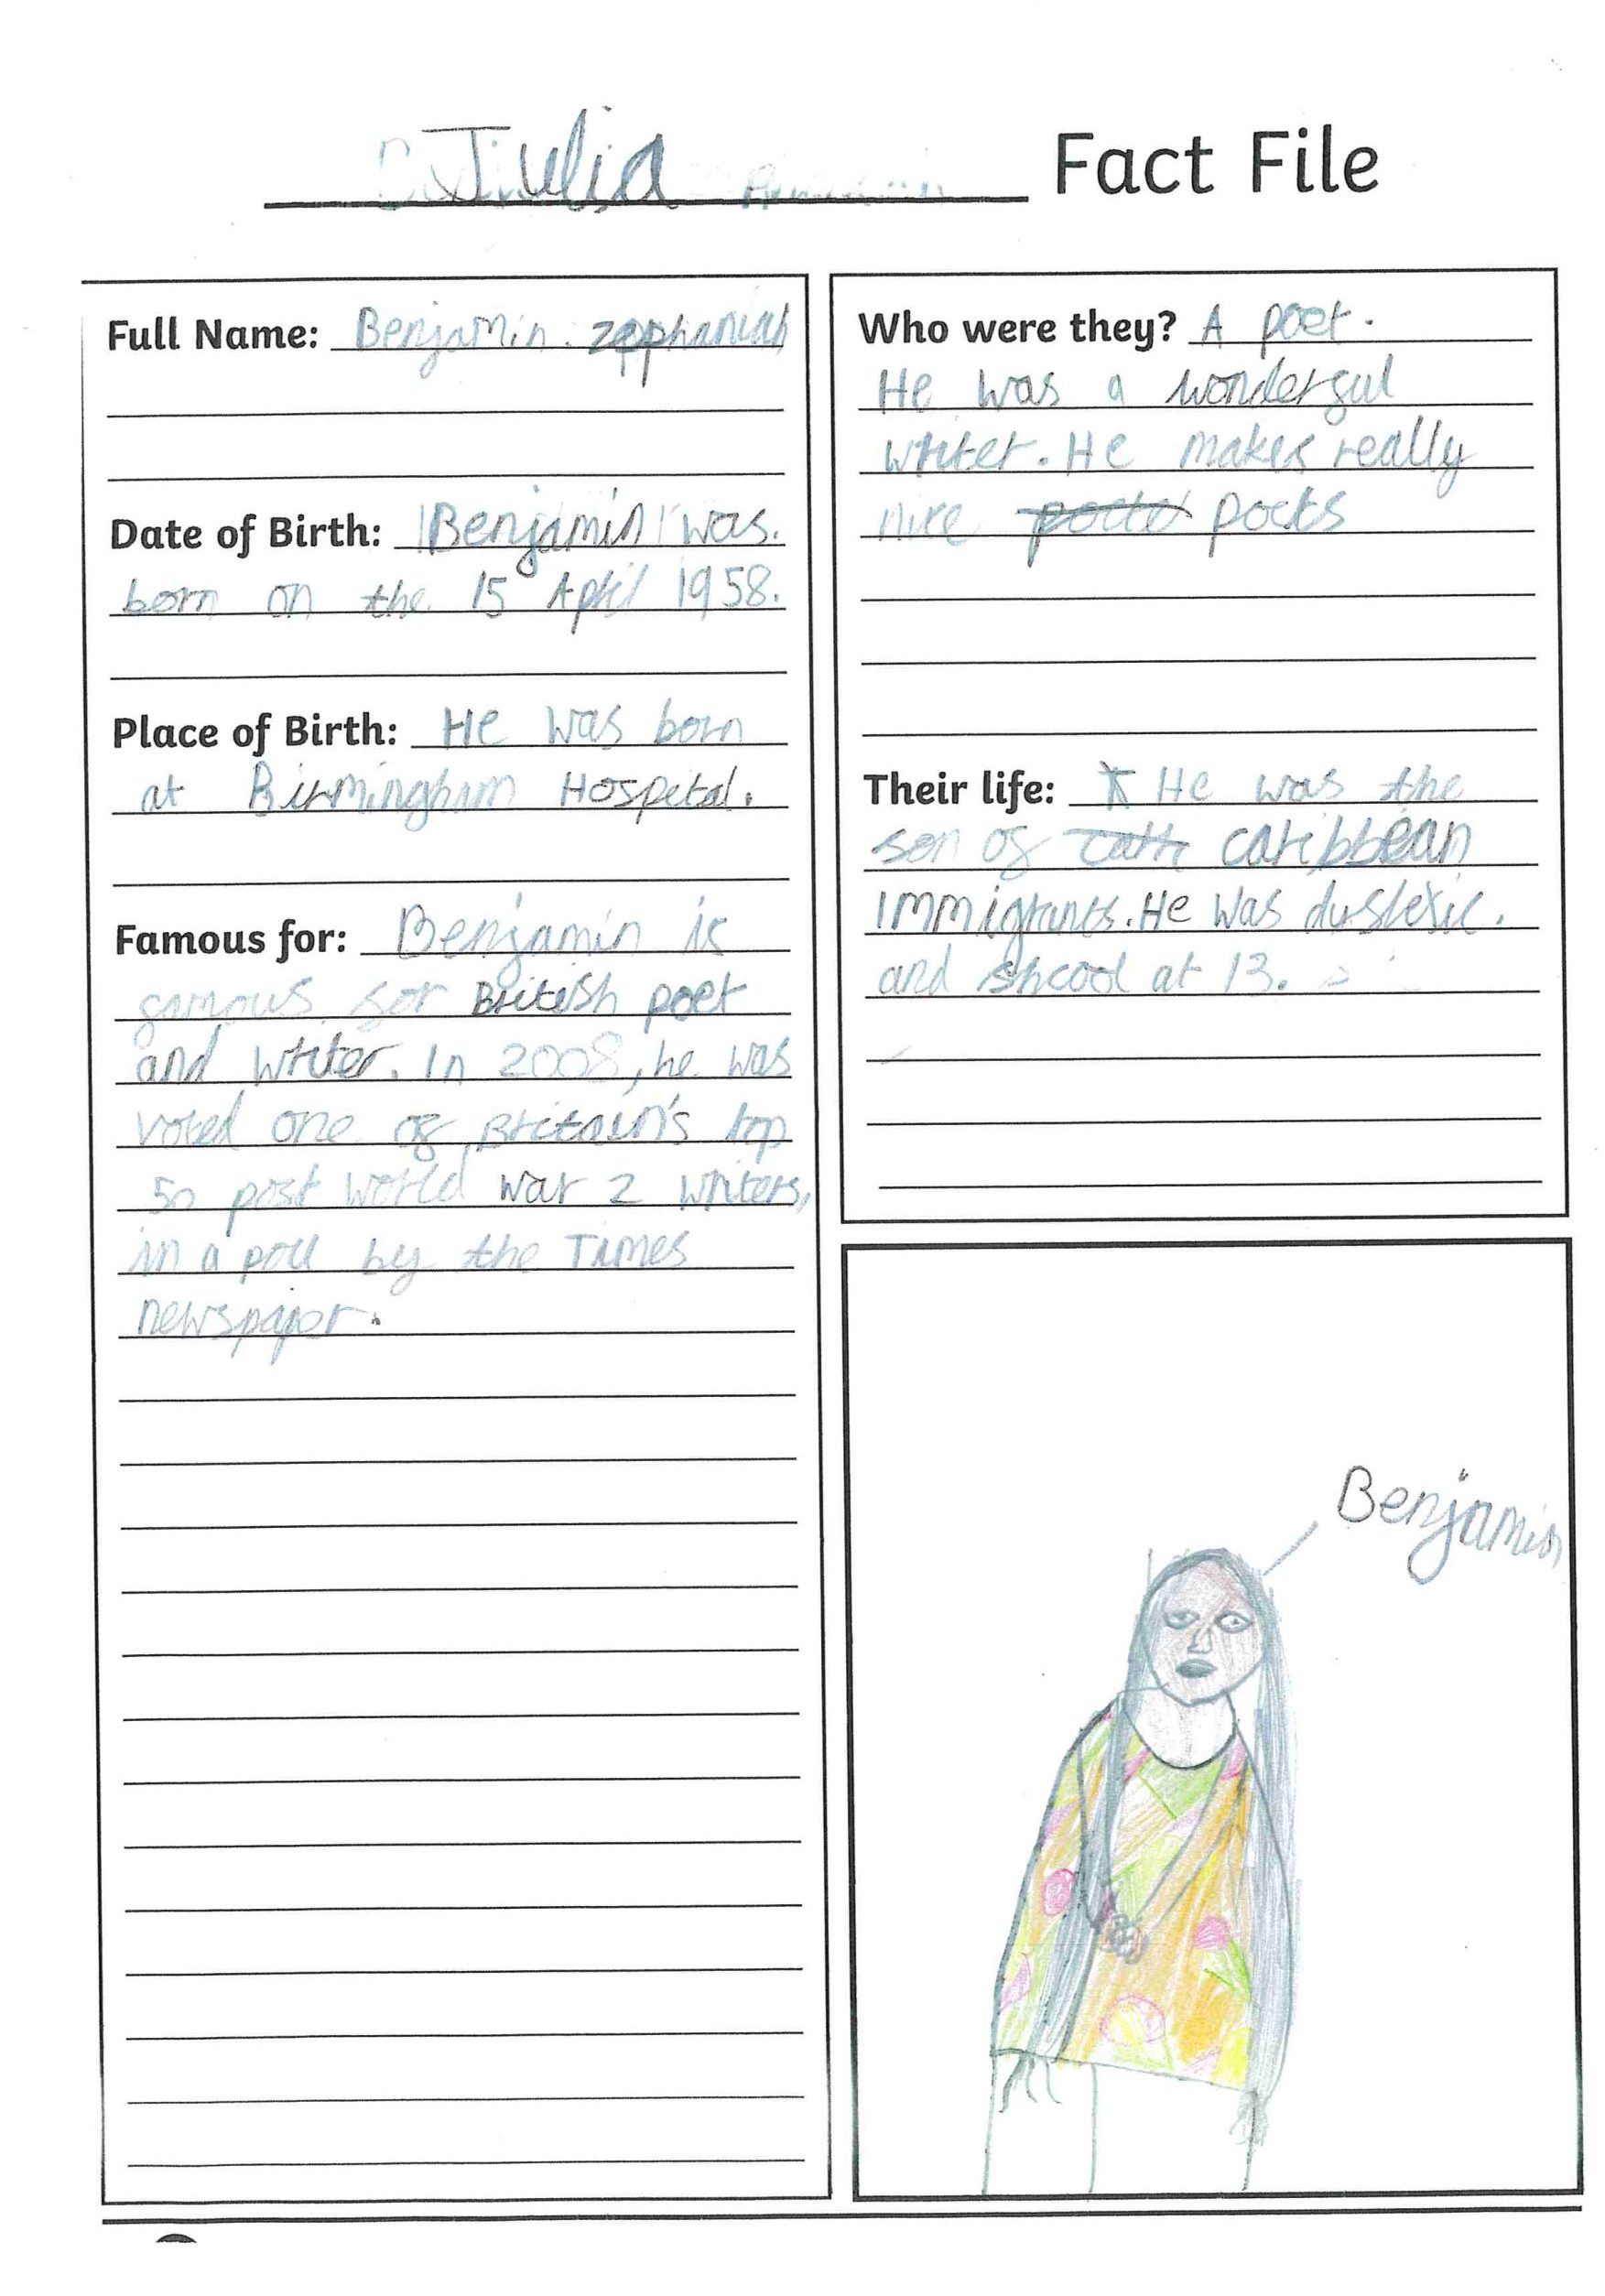 Julia Fact File
Full Name: Benjamin zephaniah
Date of Birth: Benjamin was.
born on the 15 April 1958.
Place of Birth: He was born
at Birmingham Hospetal.
Famous for: Benjamin is
famous for British poet
and writer. In 2008, he was
voted one of Britain's top
50 post world war 2 writers,
in a poll by the Times
newspaper.
Who were they? A poet.
He was a wonderful
writer. He makes really
nice poets
Their life: He was the
son of caribbean
immigrants. He was duslexic.
and shcool at 13.
Benjamin